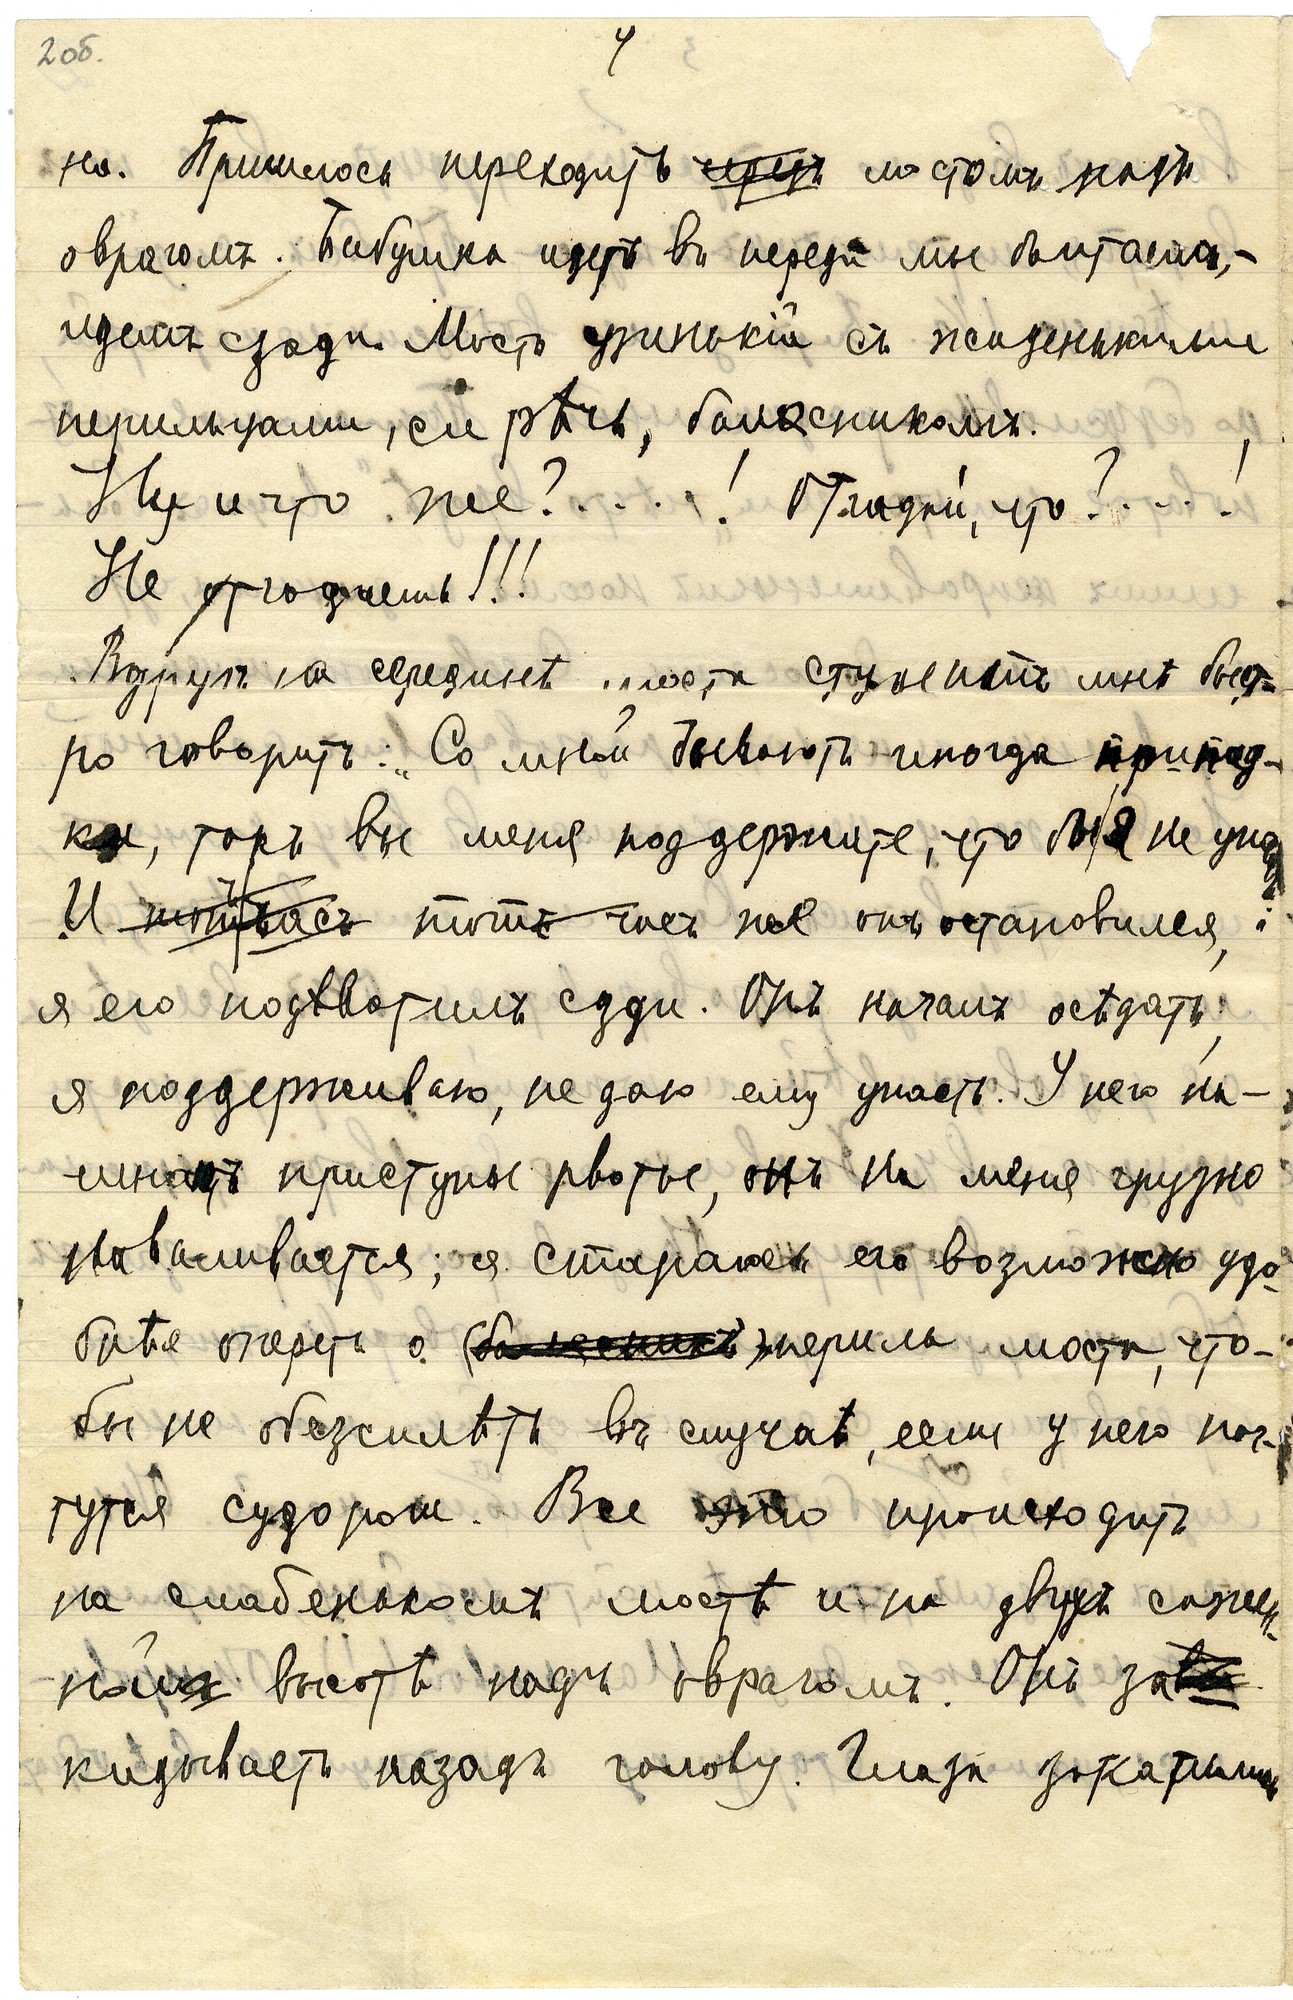 2 об.
4
но. Пришлось переходить через мостомъ надъ
оврагомъ. Бабушка идетъ въ переди мы болтаемъ,-
идемъ сзади. Мостъ узинькій съ жиденькими
перильцами, си рѣчь, балясникомъ.
Ну и что же?....! Отгадай, что?....!
Не отгадаешь!!!
Вдругъ на серединѣ моста студентъ мнѣ быст-
ро говоритъ: „Со мной бываютъ иногда припад-
ки, такъ вы меня поддержите, что бы я не упалъ
И тотчасъ тотъ часъ же онъ остановился, и
я его подхватилъ сзади. Онъ началъ осѣдать,
я поддерживаю, не даю ему упасть. У него на-
чинаются приступы рвоты, онъ на меня грузно
наваливается; я стараюсь его возможно удо-
бнѣе опереть о (балясникъ) перила моста, что-
бы не обезсилѣть въ случаѣ, если у него нач-
нутся судороги. Все это происходитъ
на слабенькомъ мостѣ и на двухъ сажен-
ной высотѣ надъ оврагомъ. Онъ за
кидываетъ назадъ голову. Глаза закатились